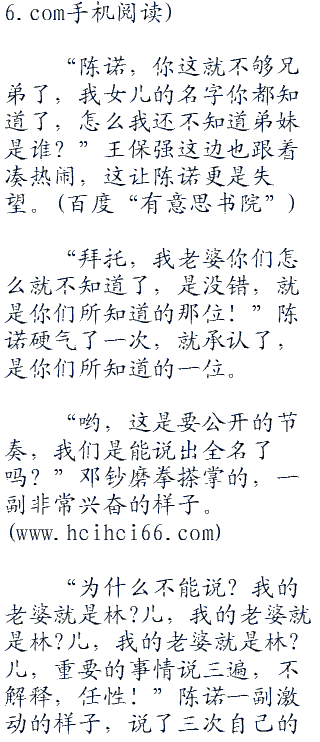 6.com手机阅读)
“陈诺，你这就不够兄
弟了，我女儿的名字你都知
道了，怎么我还不知道弟妹
是谁？”王保强这边也跟着
凑热闹，这让陈诺更是失
望。(百度“有意思书院”)
“拜托，我老婆你们怎
么就不知道了，是没错，就
是你们所知道的那位！”陈
诺硬气了一次，就承认了，
是你们所知道的一位。
“哟，这是要公开的节
奏，我们是能说出全名了
吗？”邓钞磨拳搽掌的，一
副非常兴奋的样子。
(www.hcihci66.com)
“为什么不能说？我的
老婆就是林?儿，我的老婆就
是林?儿，我的老婆就是林?
儿，重要的事情说三遍，不
解释，任性！”陈诺一副激
动的样子，说了三次自己的